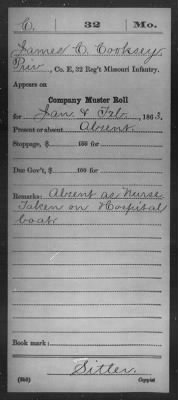 C. 32 Mo.
James C. Cooksey
Priv, Co. E, 32 Reg't Missouri Infantry.
Appears on
Company Muster Roll
for Jan & Feb, 1863.
Present or absent Absent
Stoppage, $ 100 for
Due Gov't, $ 100 for
Remarks: Absent as Nurse
Taken on Hospital
boat
Book mark:
Sitter
Copyist.